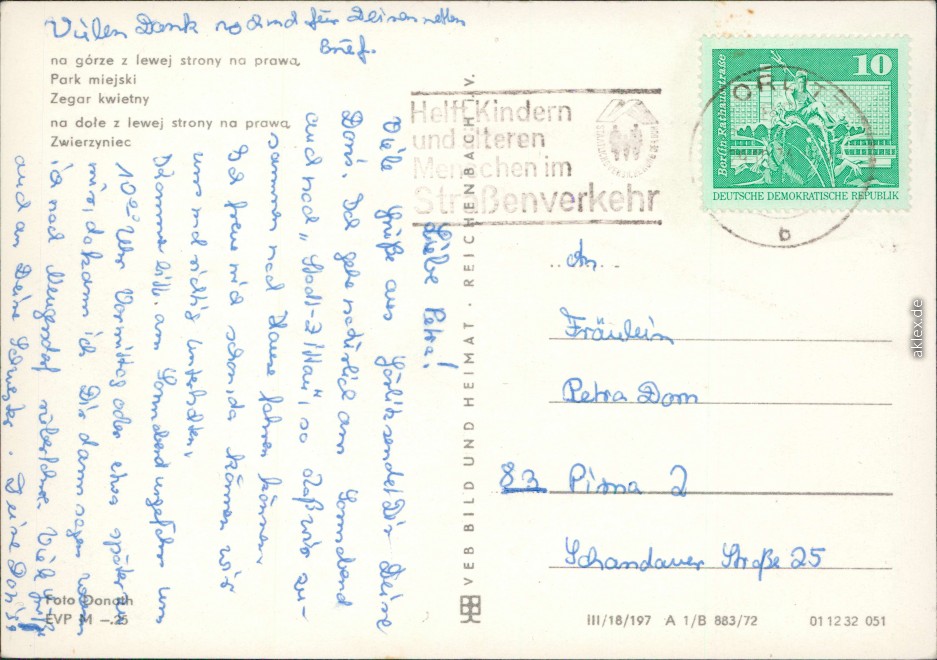 Vielen Dank noch mal für Deinen netten
Brief.
na górze z lewej strony na prawą,
Park miejski
Zegar kwietny
na dole z lewej strony na prawą
Zwierzyniec
Liebe Petra!
Viele Grüße aus Görlitz sendet Dir Deine
Doris. Ich gehe natürlich am Sonnabend
auch nach „Stadt-Zittau“, so daß wir zu-
sammen nach Hause fahren können.
Ich freue mich schon, da können wir
uns mal richtig unterhalten.
Komme bitte am Sonnabend ungefähr um
10⁰⁰ Uhr Vormittag oder etwas später zu
mir, da kann ich Dir dann sagen wann
ich nach Neugersdorf rüberfahre. Viele Grüße
auch an Deine Schwester. Deine Doris
Foto Donath
EVP M –.25
VEB BILD UND HEIMAT · REICHENBACH I. V.
Helft Kindern
und älteren
Menschen im
Straßenverkehr
GÖRLITZ
b
Berlin Rathausstraße
10
DEUTSCHE DEMOKRATISCHE REPUBLIK
An
Fräulein
Petra Dorn
83 Pirna 2
Schandauer Straße 25
III/18/197 A 1/B 883/72 01 12 32 051
aklex.de